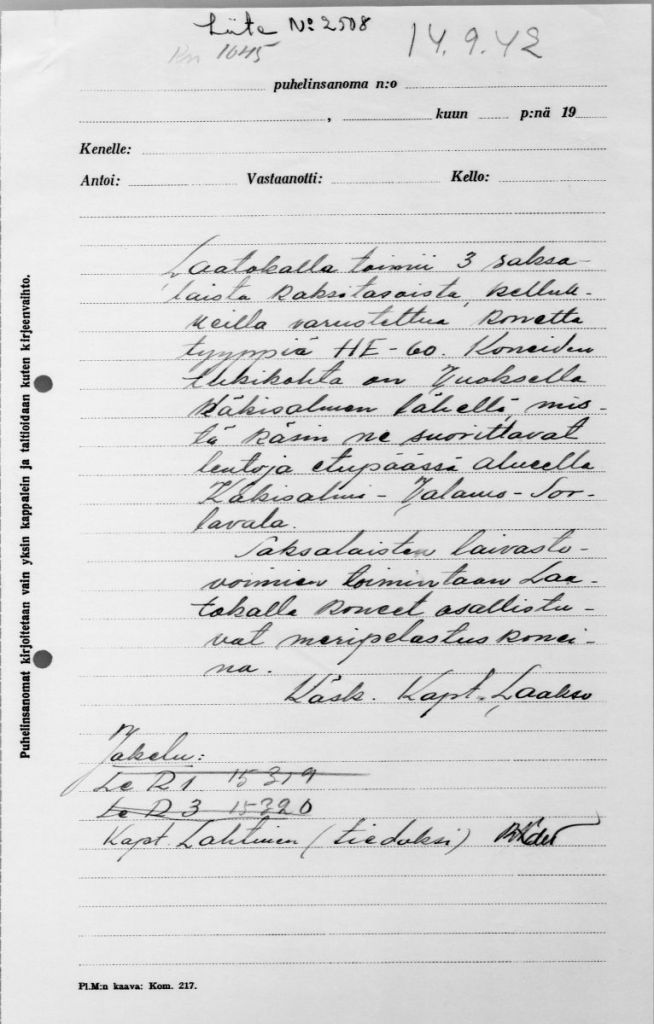 Liite No 2508
14.9.42
1645
puhelinsanoma n:o
, kuun p:nä 19
Kenelle:
Antoi: Vastaanotti: Kello:
Laatokalla toimii 3 saksa-
laista kaksitasoista, kelluk-
keilla varustettua konetta
tyyppiä HE-60. Koneiden
tukikohta on
Käkisalmen lähellä, mis-
tä käsin ne suorittavat
lentoja etupäässä alueella
Käkisalmi - Valamo - Sor-
tavala.
Saksalaisten laivasto-
voimien toimintaan Laa-
tokalla koneet osallistu-
vat meripelastuskonei-
na.
Käsk. Kapt. Laakso
Jakelu:
Le R 1 15319
Le R 3 15320
Kapt. Lahtinen (tiedoksi)
Puhelinsanomat kirjoitetaan vain yksin kappalein ja taltioidaan kuten kirjeenvaihto.
Pl.M:n kaava: Kom. 217.